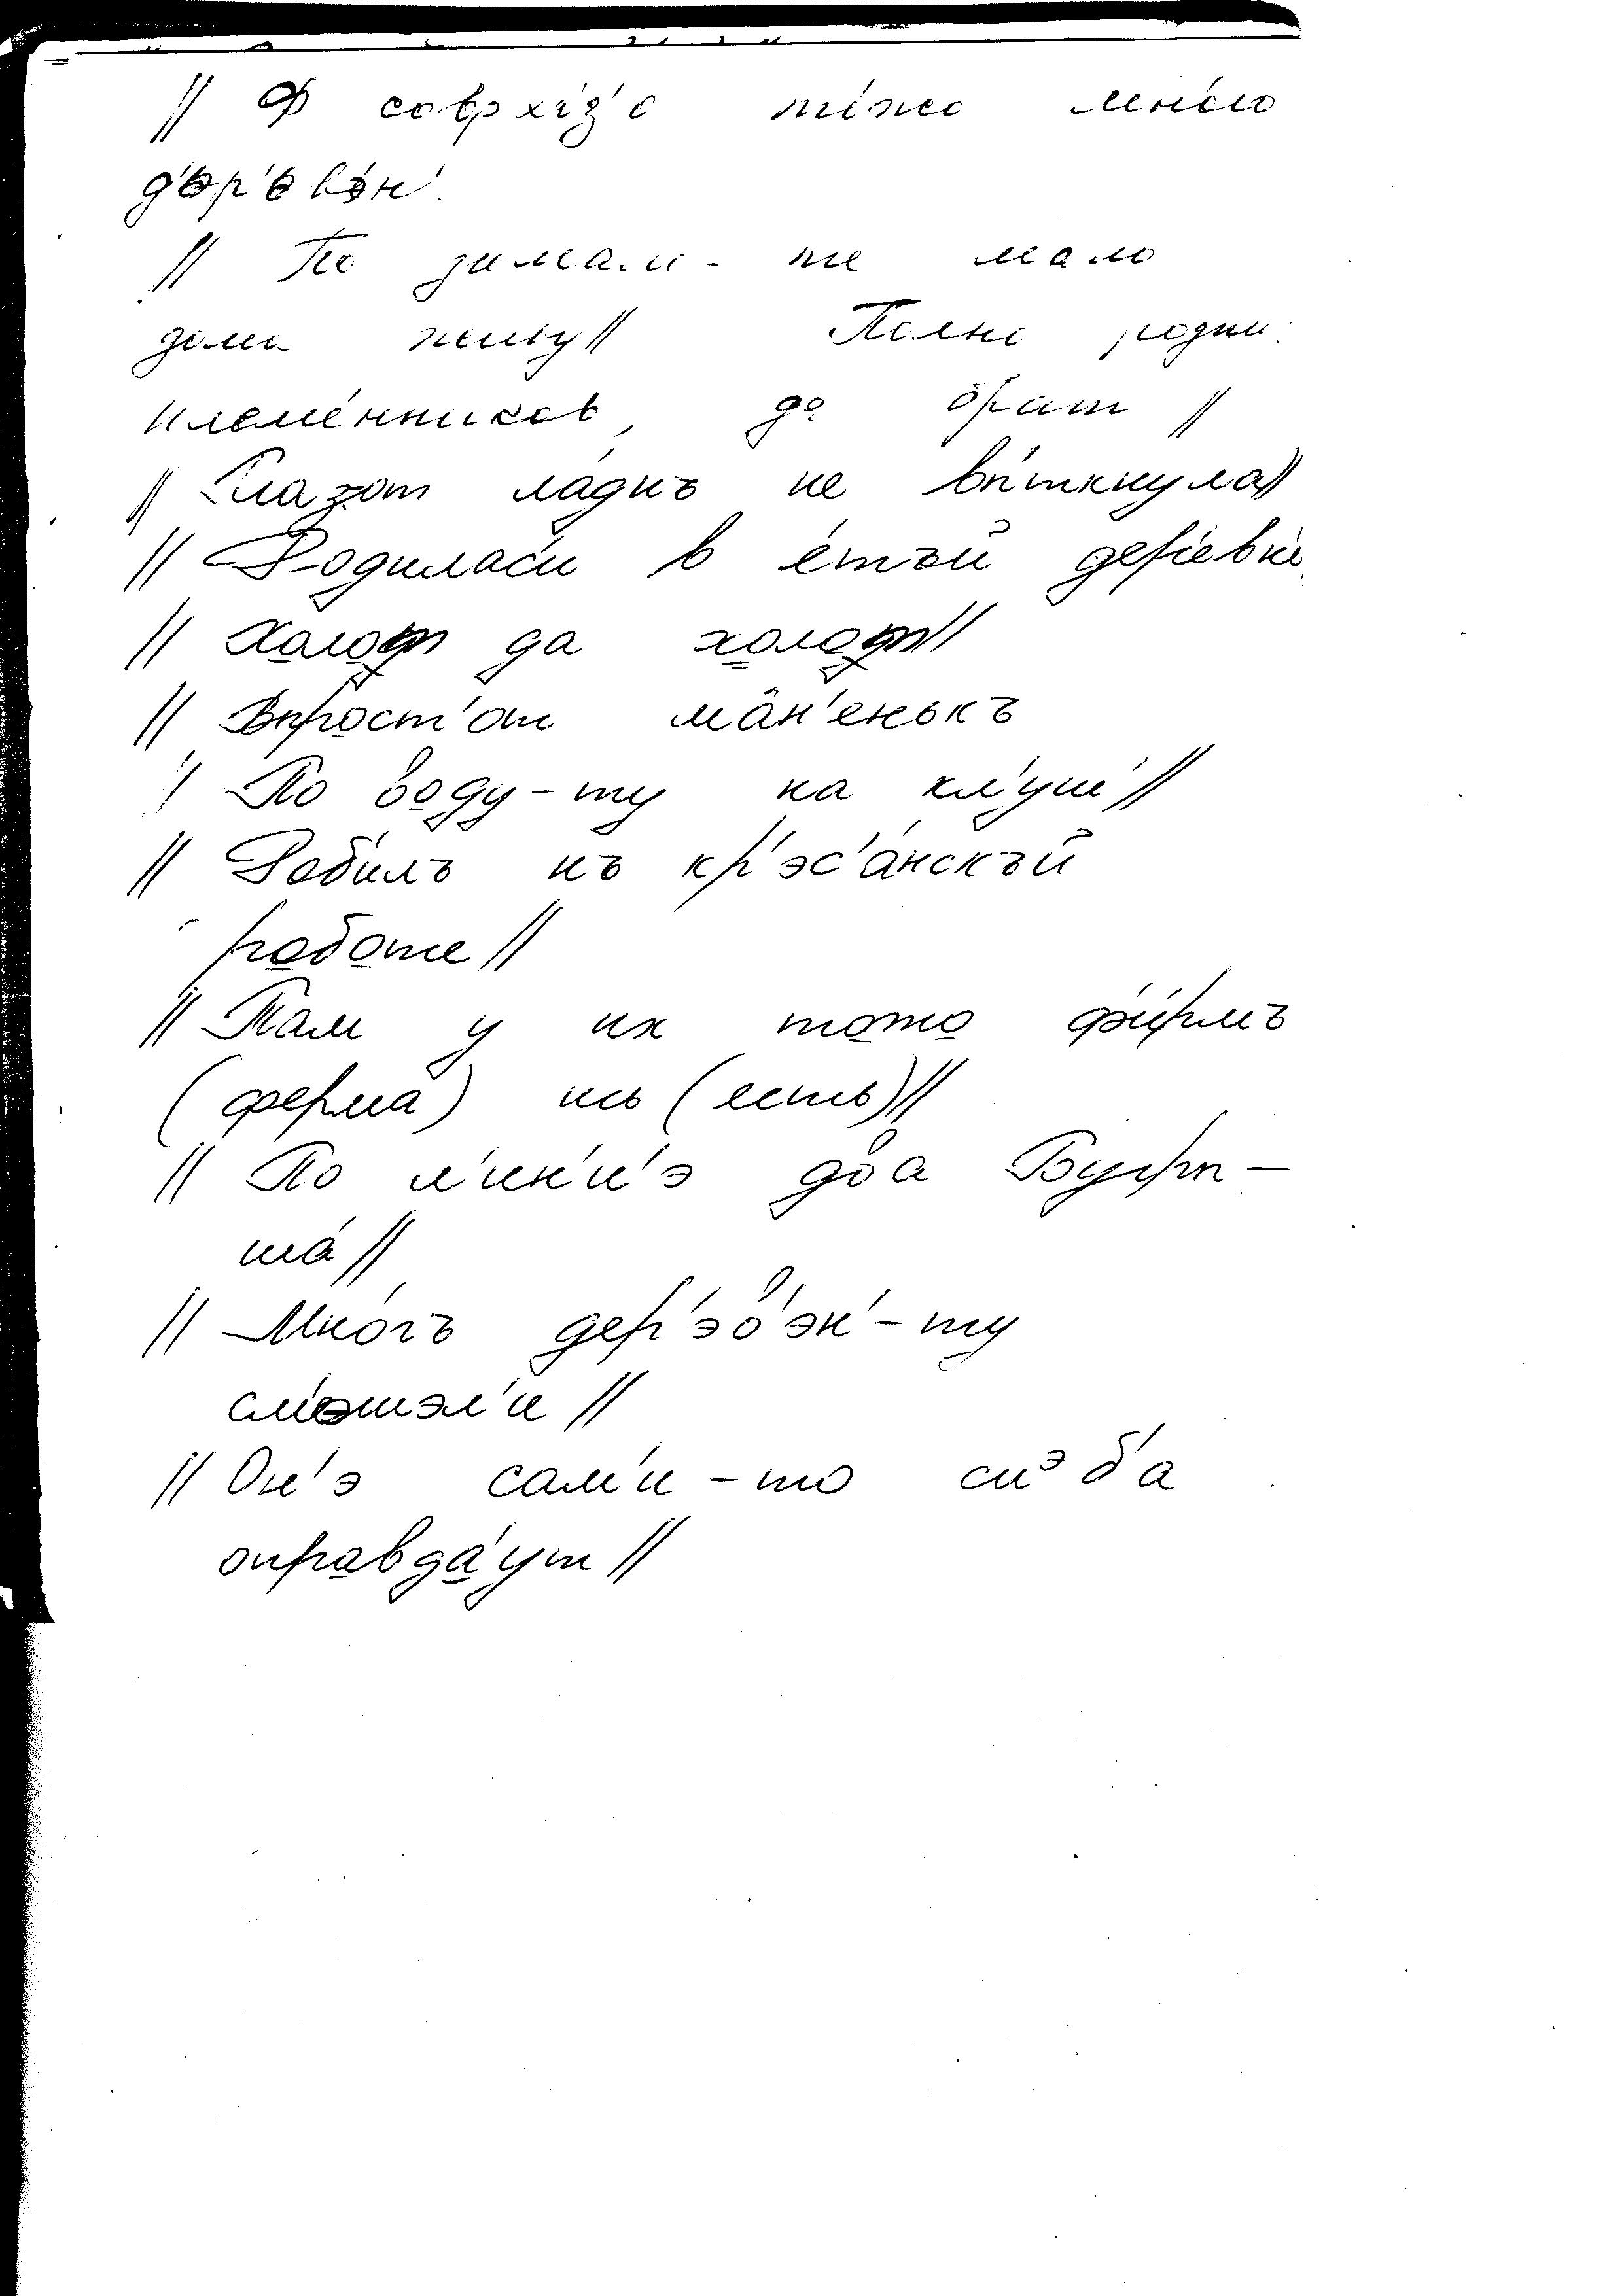 // Ф совхоз'е тоже много
д'ер'евэн'
// По зимам-те мало
дома живу// Полно родни:
племе́нников, да брат //
// Глазот ла́днъ не вы́ткнула//
// Родилас'и в е́тъй дер'евн'е
// Холот да холот//
// Впрост'от ма̂н'енькъ
// По воду-ту на кл'уш'//
// Робилъ нъ кр'эс'а́нскъй
работе//
// Там у их тожо ф'и́рмъ
(ферма) ись (есть)//
// По л'ин'и'э два Бурт-
ша́//
// Мно́гъ дер'эв'эн'-ту
см'эшэл'и //
// Он'э сам'и-то сиэб'а
оправда́ут//